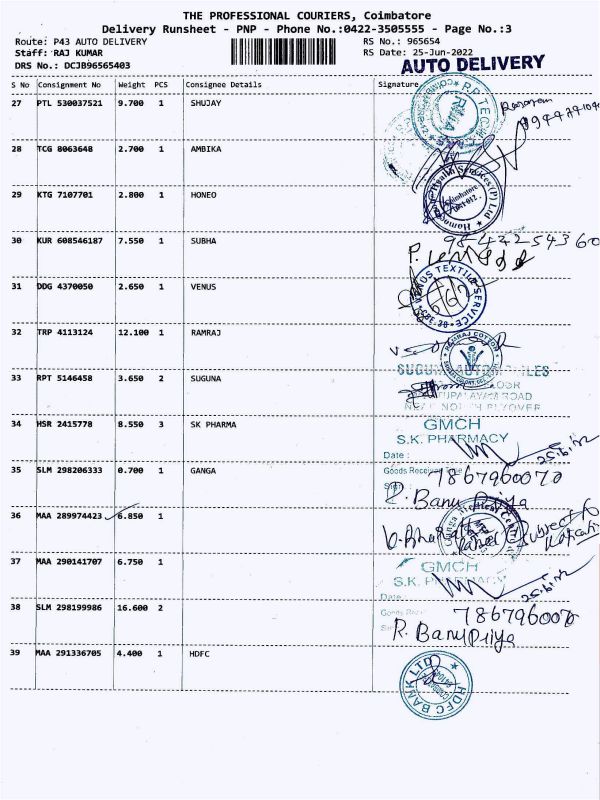 THE PROFESSIONAL COURIERS, Coimbatore
Delivery Runsheet - PNP - Phone No.:0422-3505555 - Page No.:3
Route: P43 AUTO DELIVERY RS No.: 965654
Staff: RAJ KUMAR RS Date: 25-Jun-2022
DRS No.: DCJB96565403 AUTO DELIVERY
S No Consignment No Weight PCS Consignee Details Signature
27 PTL 530037521 9.700 1 SHUJAY
28 TCG 8063648 2.700 1 AMBIKA
29 KTG 7107701 2.800 1 HONEO
30 KUR 608546187 7.550 1 SUBHA
31 DDG 4370050 2.650 1 VENUS
VENUS TEXTILE SERVICE
32 TRP 4113124 12.100 1 RAMRAJ
RAMRAJ COTTON
33 RPT 5146458 3.650 2 SUGUNA
SUGUNA AUTOMOBILES
34 HSR 2415778 8.550 3 SK PHARMA
GMCH
S.K. PHARMACY
Date : 25.6.22
35 SLM 298206333 0.700 1 GANGA
7867960070
R. Banu Priya
36 MAA 289974423 6.850 1
37 MAA 290141707 6.750 1
GMCH
S.K. PHARMACY
25.6.22
38 SLM 298199986 16.600 2
7867960070
R. Banu Priya
39 MAA 291336705 4.400 1 HDFC
HDFC BANK LTD